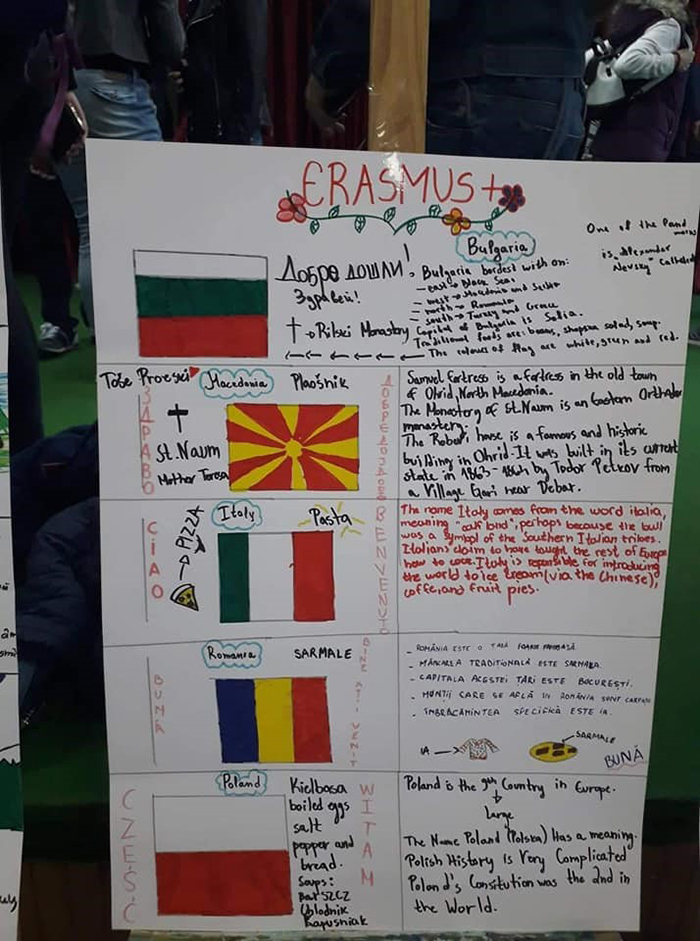 ERASMUS+
Bulgaria
One of the land
marks
is Alexander
Nevsky Cathedral
Добре дошли!
Здравей!
→ Rilski Monastery
Bulgaria bordest with on:
- east → Black Sea;
- west → Macedonia and Serbia
- north → Romania
- south → Turkey and Greece
Capital of Bulgaria is Sofia.
Traditional foods are: beans, shopska salad, soup.
The colours of flag are white, green and red.
Toše Proeski
Macedonia
Plaošnik
ЗДРАВО
St. Naum
Mother Teresa
ДОБРЕДОЈДОВТЕ
Samuel Fortress is a fortress in the old town
of Ohrid, North Macedonia.
The Monastery of St. Naum is an Eastern Orthodox
monastery.
The Robevi house is a famous and historic
building in Ohrid. It was built in its current
state in by Todor Petkov from
a Village Gari near Debar.
CIAO
PIZZA
Italy
Pasta
BENVENUTO
The name Italy comes from the word italia,
meaning perhaps because the bull
was a symbol of the Southern Italian tribes.
Italians claim to have taught the rest of Europe
how to cook. Italy is responsible for introducing
the world to ice cream (via the Chinese),
coffe, and fruit pies.
BUNĂ
Romania
SARMALE
BINE AȚI VENIT
- ROMÂNIA ESTE O ȚARĂ FOARTE FRUMOASĂ.
- MÂNCAREA TRADIȚIONALĂ ESTE SARMAUA.
- CAPITALA ACESTEI ȚĂRI ESTE BUCUREȘTI.
- MUNȚII CARE SE AFLĂ ÎN ROMÂNIA SUNT CARPAȚII
- ÎMBRĂCĂMINTEA SPECIFICĂ ESTE IA.
IA
SARMALE
BUNĂ
CZEŚĆ
Poland
Kielbasa
boiled eggs
salt
pepper and
bread.
Soups:
Barszcz
Chlodnik
Kapusniak
WITAM
Poland is the 9th Country in Europe.
large
The Name Poland (Polska) Has a meaning.
Polish History is Very Complicated
Poland's Consitution was the 2nd in
the World.